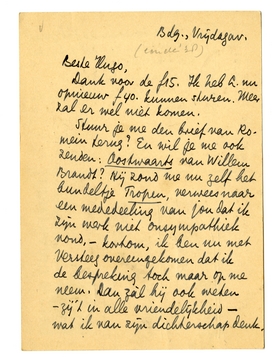 Bdg., Vrijdagav.
Beste Hugo,
Dank voor de f15. Ik heb L. nu
opnieuw f40. kunnen sturen. Meer
zal er wel niet komen.
Stuur je me den brief van Ro-
mein terug? En wil je me ook
zenden: Oostwaarts van Willem
Brandt? Hij zond me nu zelf het
bundeltje Tropen, verwees naar
een mededeeling van jou dat ik
zijn werk niet onsympathiek
vond, – kortom, ik ben nu met
Versteeg overeengekomen dat ik
de bespreking toch maar op me
neem. Dan zal hij ook weten
– zij't in alle vriendelijkheid –
wat ik van zijn dichterschap denk.